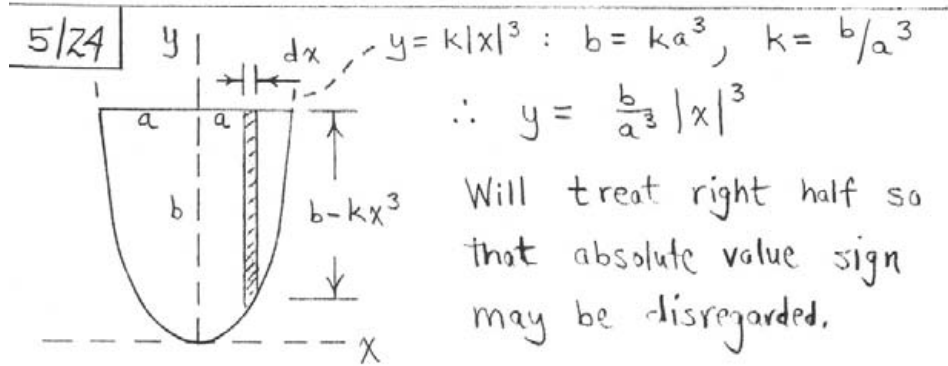 5/24
y
dx
y = k|x|³ : b = ka³, k = b/a³
∴ y = b/a³ |x|³
a
a
b
b-kx³
Will treat right half so
that absolute value sign
may be disregarded.
x